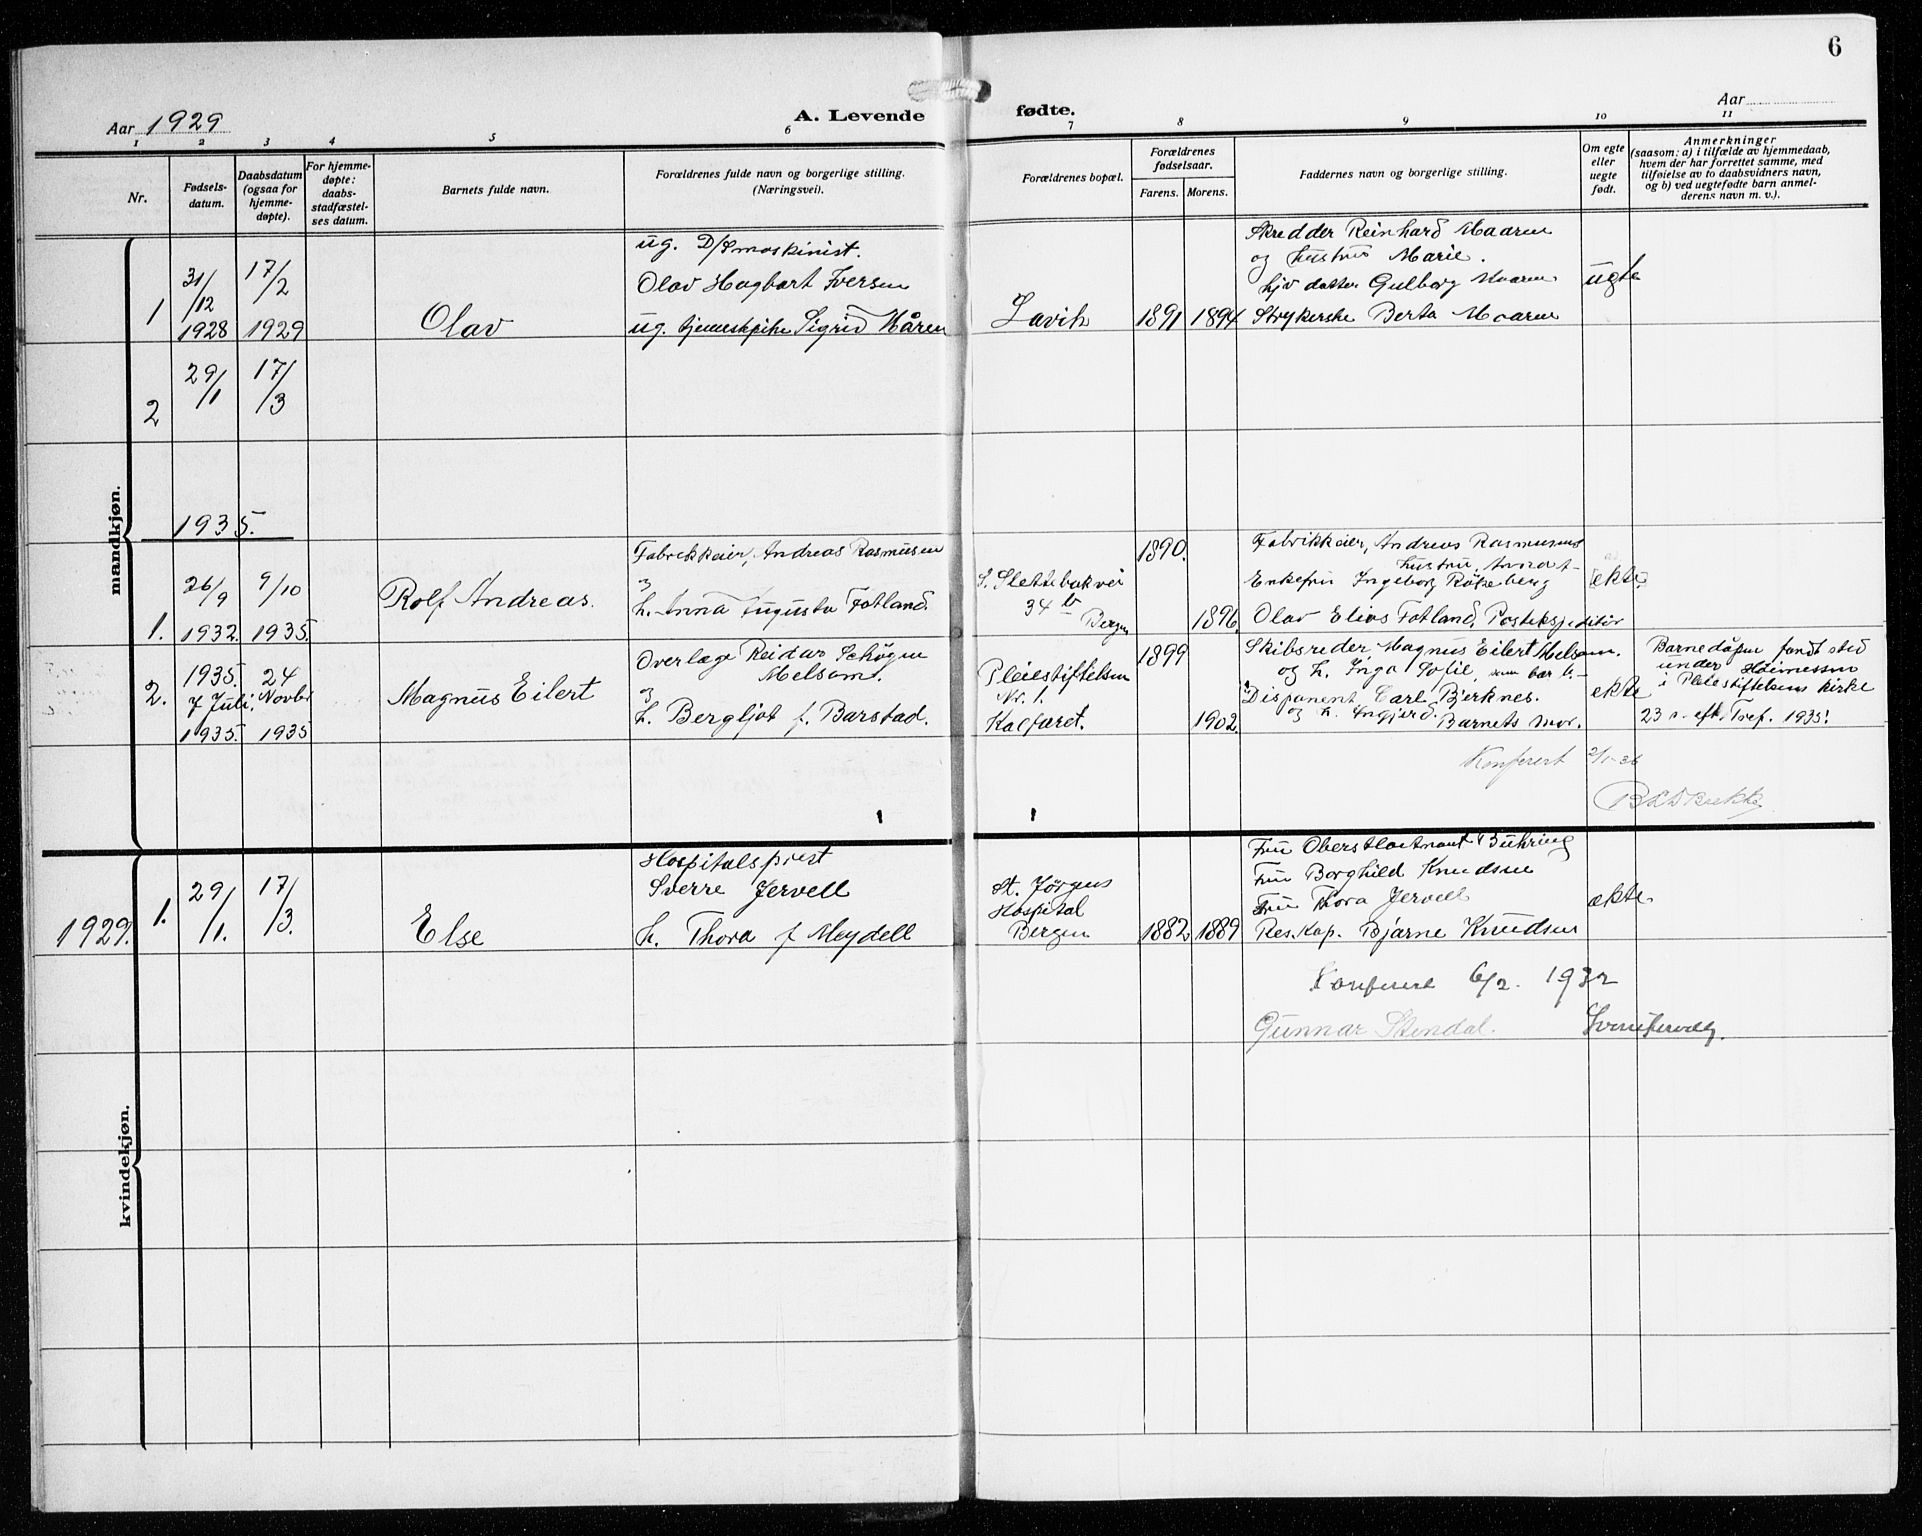 6
Aar 1929
A. Levende fødte.
Aar
1 2 3 4 5 6 7 8 9 10 11
Nr.
Fødsels-
datum.
Daabsdatum
(ogsaa for
hjemme-
døpte).
For hjemme-
døpte:
daabs-
stadfæstel-
ses datum.
Barnets fulde navn.
Forældrenes fulde navn og borgerlige stilling.
(Næringsvei).
Forældrenes bopæl.
Forældrenes
fødselsaar.
Farens. Morens.
Faddernes navn og borgerlige stilling.
Om egte
eller
uegte
født.
Anmerkninger
(saasom: a) i tilfælde av hjemmedaab,
hvem der har forrettet samme, med
tilføielse av to daabsvidners navn,
og b) ved uegtefødte barn anmel-
derens navn m. v.).
mandkjøn.
1
31/12
1928
17/2
1929
Olav
ug. D/S maskinist.
Olav Hagbart Iversen
ug. tjenestepike Sigrid Måren
Lavik
1891 1894
Skredder Reinhard Maaren
og hustru Marie.
hjv datter Gulborg Maaren
Strykerske Berta Maaren
ugte
2
29/1
17/3
1935.
1.
26/9
1932.
9/10
1935.
Rolf Andreas.
Fabrikkeier, Andreas Rasmusen
og
h. Anna Augusta Fotland.
S. Slettebakvei
34 b
Bergen
1890.
1896.
Fabrikkeier, Andreas Rasmusens
hustru, Anna
Enkefru Ingeborg Røkeberg
Olav Elias Fotland, Postekspeditør
ekte
2.
1935.
7 Juli.
1935.
24
Novbr
1935
Magnus Eilert
Overlæge Reidar Schøgen
Melsom.
og
h. Bergljot f. Barstad.
Pleiestiftelsen
Nr. 1.
Kalfaret.
1899
1902.
Skibsreder Magnus Eilert Melsom.
og h. Inga Sofie, som bar b.
Disponent Carl Bjerknes.
og h. Ingjerd. Barnets mor.
ekte
Barnedåpen fandt sted
under Høimessen
i Pleiestiftelsens kirke
23 s. eft. Tref. 1935.
Konferert 2/1-36
kvindekjøn.
1929.
1.
29/1.
17/3.
Else
Hospitalsprest
Sverre Jervell
h. Thora f Meydell
St. Jørgens
Hospital
Bergen
1882 1889
Fru Oberstløitnant Buhring
Fru Borghild Knudsen
Fru Thora Jervell
Res. kap. Bjarne Knudsen
ekte.
Konferert 6/2. 1932
Gunnar Stendal. Sverre Jervell